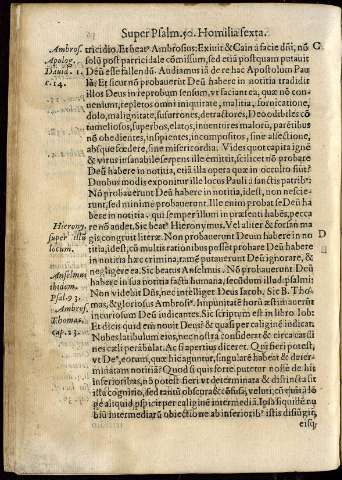 Super Psalm. 50. Homilia sexta.
Ambros.
Apolog.
Dauid. 1.
c. 14.
tricidio. Et beatꝰ Ambrosius: Exiuit & Cain à facie dñi, nõ
solũ post parricidale cõmissum, sed etiã postquam putauit
Deũ esse fallendũ. Audiamus iã de hac Apostolum Pau
lã: Et sicut nõ probauerunt Deũ habere in notitia tradidit
illos Deus in reprobum sensum, vt faciant ea, quæ nõ con-
ueniunt, repletos omni iniquitate, malitia, fornicatione,
dolo, malignitate, susurrones, detractores, Deo odibiles cõ
tumeliosos, superbos, elatos, inuentores malorũ, parẽtibus
nõ obedientes, insipientes, incompositos, sine affectione,
absque fœdere, sine misericordia. Vides quot capita igne
& virus insanabile serpens ille emittit, scilicet nõ probare
Deũ habere in notitia, etiã illa opera quæ in occulto fiũt?
Duobus modis exponitur ille locus Pauli à sanctis patribꝰ.
Nõ probauerunt Deũ habere in notitia, idest, non nescie-
runt, sed minimè probauerunt. Ille enim probat se Deũ ha
bere in notitia, qui semper illum in præsenti habẽs, pecca
re nõ audet. Sic beatꝰ Hieronymus. Vel aliter & forsan ma
gis congruit literæ. Non probauerunt Deum habere in no
titia, idest, cũ multis rationibus possẽt probare Deũ habere
in notitia hæc crimina, tamẽ putauerunt Deũ ignorare, &
negligere ea. Sic beatus Anselmus. Nõ probauerunt Deũ
habere in sua notitia facta humana, secũdum illud psalmi:
Non videbit Dñs, nec intelliget Deus Iacob. Sic B. Tho-
mas, & gloriosus Ambrosiꝰ. Impunitatẽ horũ æstimauerũt
incuriosum Deũ iudicantes. Sic scriptum est in libro Iob:
Et dicis quid enim nouit Deus? & quasi per caliginẽ iudicat.
Nubes latibulum eius, nec nostra considerat & circa cardi
nes cæli perãbulat. Ac si apertius diceret. Qui fieri potest,
vt Deꝰ, eorum, quæ hic aguntur, singularẽ habeat & deter-
minatam notitiã? Quod si quis forte putetur nosse de his
inferioribus, nõ potest fieri vt determinata & distincta sit
illa cognitio, sed tantũ obscura & cõfusa, veluti cũ quis lõ
gè aliquid pspicit per caliginẽ intermediã. Ipsa siquidẽ nu
biũ intermediarũ obiectione ab inferioribꝰ istis disiũgit,
C
D
Hierony.
super illũ
locum.
Anselmus
ibidem.
Psal. 93.
Ambros.
Thomas.
cap. 23.
eisq;